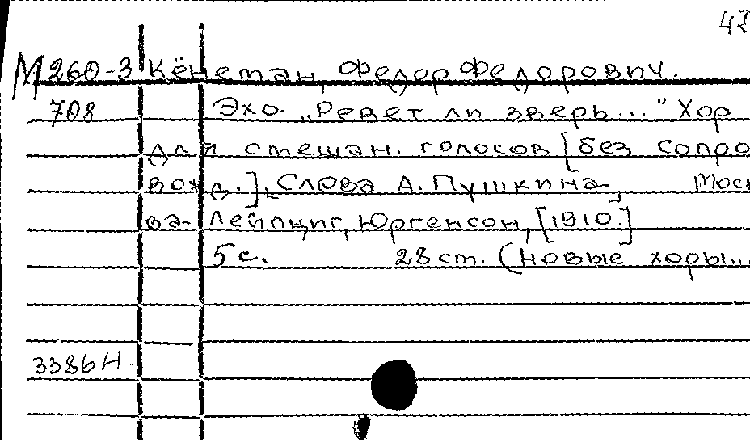 М260-3 Кёнеман, Федор Федорович.
708 Эхо „Ревет ли зверь..." Хор
для смешан. голосов [без сопро
вожд.]. Слова А. Пушкина, Моск
ва- Лейпциг, Юргенсон, [1910.]
5 с. 28 ст. (Новые хоры...
3386Н